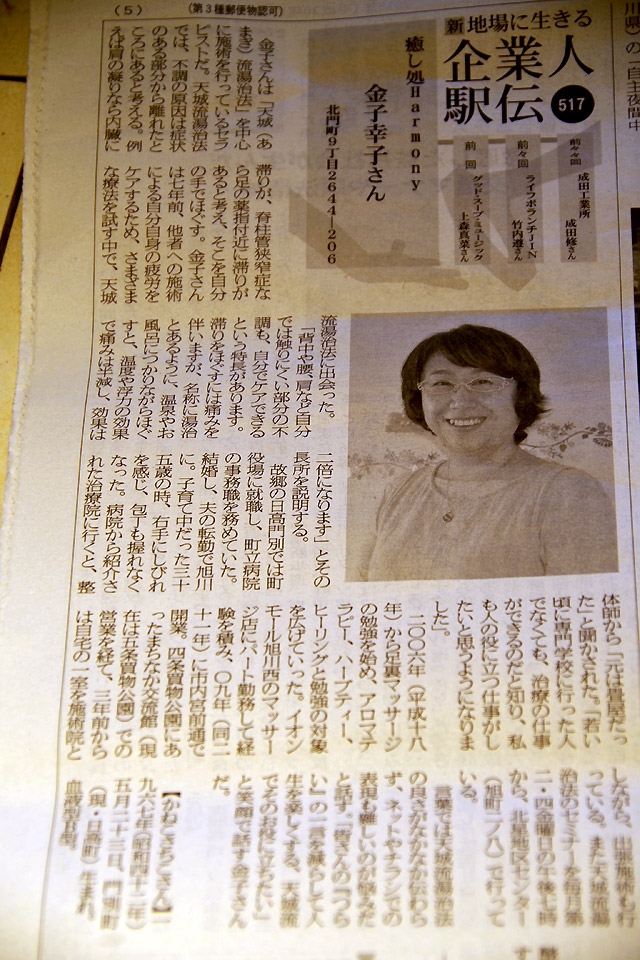 （5）
（第3種郵便物認可）
新 地場に生きる
企業人
駅伝
517
前々々回 成田工業所
成田修さん
前々回 ライブボランチーIN
竹内遵さん
前回 グッド・スープ・ミュージック
上森真菜さん
癒し処Harmony
金子幸子さん
北門町9丁目2644―206
金子さんは「天城（あ
まぎ）流湯治法」を中心
に施術を行っているセラ
ピストだ。天城流湯治法
では、不調の原因は症状
のある部分から離れたと
ころにあると考える。例
えば肩の凝りなら内臓に
滞りが、脊柱管狭窄症な
ら足の薬指付近に滞りが
あると考え、そこを自分
の手でほぐす。金子さん
は七年前、他者への施術
による自分自身の疲労を
ケアするため、さまざま
な療法を試す中で、天城
流湯治法に出会った。
「背中や腰、肩など自分
では触りにくい部分の不
調も、自分でケアできる
という特長があります。
滞りをほぐすには痛みを
伴いますが、名称に湯治
とあるように、温泉やお
風呂につかりながらほぐ
すと、温度や浮力の効果
で痛みは半減し、効果は
二倍になります」とその
長所を説明する。
故郷の日高門別では町
役場に就職し、町立病院
の事務職を務めていた。
結婚し、夫の転勤で旭川
に。子育て中だった三十
五歳の時、右手にしびれ
を感じ、包丁も握れなく
なった。病院から紹介さ
れた治療院に行くと、整
体師から「元は畳屋だっ
た」と聞かされた。「若い
頃に専門学校に行った人
でなくても、治療の仕事
ができるのだと知り、私
も人の役に立つ仕事がし
たいと思うようになりま
した。
二〇〇六年（平成十八
年）から足裏マッサージ
の勉強を始め、アロマテ
ラピー、ハーブティー、
ヒーリングと勉強の対象
を広げていった。イオン
モール旭川西のマッサー
ジ店にパート勤務して経
験を積み、〇九年（同二
十一年）に市内宮前通で
開業。四条買物公園にあ
ったまちなか交流館（現
在は五条買物公園）での
営業を経て、三年前から
は自宅の一室を施術院と
しながら、出張施術も行
っている。また天城流湯
治法のセミナーを毎月第
二・四金曜日の午後七時
から、北星地区センター
（旭町二ノ八）で行って
いる。
言葉では天城流湯治法
の良さがなかなか伝わら
ず、ネットやチラシでの
表現も難しいのが悩みだ
と話す。「皆さんの『つら
い』の一言を減らして人
生を楽しくする、天城流
でそのお役に立ちたい」
と笑顔で話す金子さん
だ。
【かねこさちこさん】一
九六七年（昭和四十二年）
五月二十三日、門別町
（現・日高町）生まれ。
血液型B型。